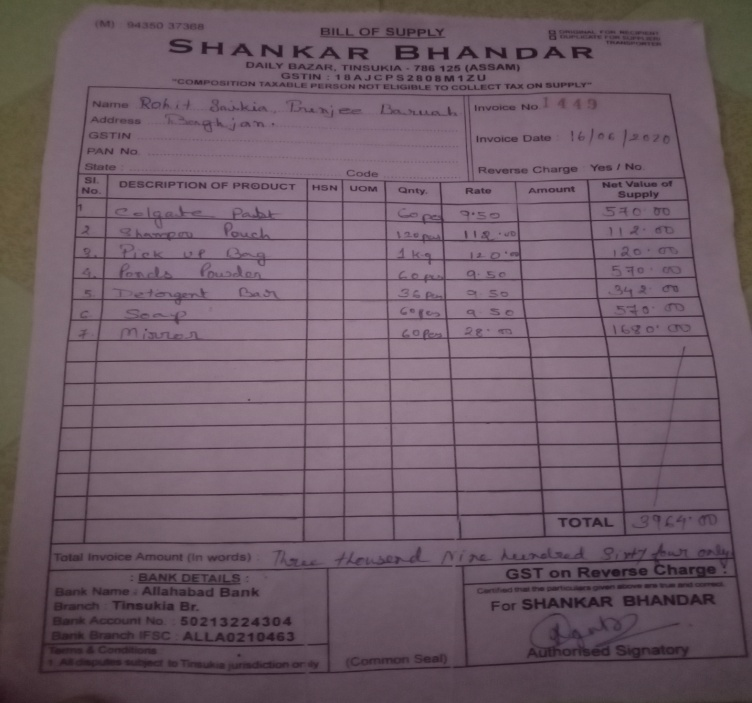 (M) 94350 37368
BILL OF SUPPLY
ORIGINAL FOR RECIPIENT
DUPLICATE FOR SUPPLIER
TRANSPORTER
SHANKAR BHANDAR
DAILY BAZAR, TINSUKIA - 786 125 (ASSAM)
GSTIN : 18AJCPS2808M1ZU
"COMPOSITION TAXABLE PERSON NOT ELIGIBLE TO COLLECT TAX ON SUPPLY"
Name Rohit Saikia, Baruah
Invoice No 1449
Address Baghjan.
GSTIN
Invoice Date : 16/06/2020
PAN No.
State : Code
Reverse Charge : Yes / No
Sl. No. DESCRIPTION OF PRODUCT HSN UOM Qnty. Rate Amount Net Value of Supply
1 Colgate 60 pcs 9.50 570.00
2. Pouch 120 pcs 112.00 112.00
3. Pick up Bag 1 kg 120.00 120.00
4. Ponds Powder 60 pcs 9.50 570.00
5. Detergent Bar 36 pcs 9.50 342.00
6. Soap 60 pcs 9.50 570.00
7. Mirror 60 pcs 28.00 1680.00
TOTAL 3964.00
Total Invoice Amount (in words) : Three thousend Nine hundred Sixty four only
: BANK DETAILS :
Bank Name : Allahabad Bank
Branch : Tinsukia Br.
Bank Account No. : 50213224304
Bank Branch IFSC : ALLA0210463
Terms & Conditions
1. All disputes subject to Tinsukia jurisdiction only
(Common Seal)
GST on Reverse Charge :
Certified that the particulars given above are true and correct.
For SHANKAR BHANDAR
Authorised Signatory